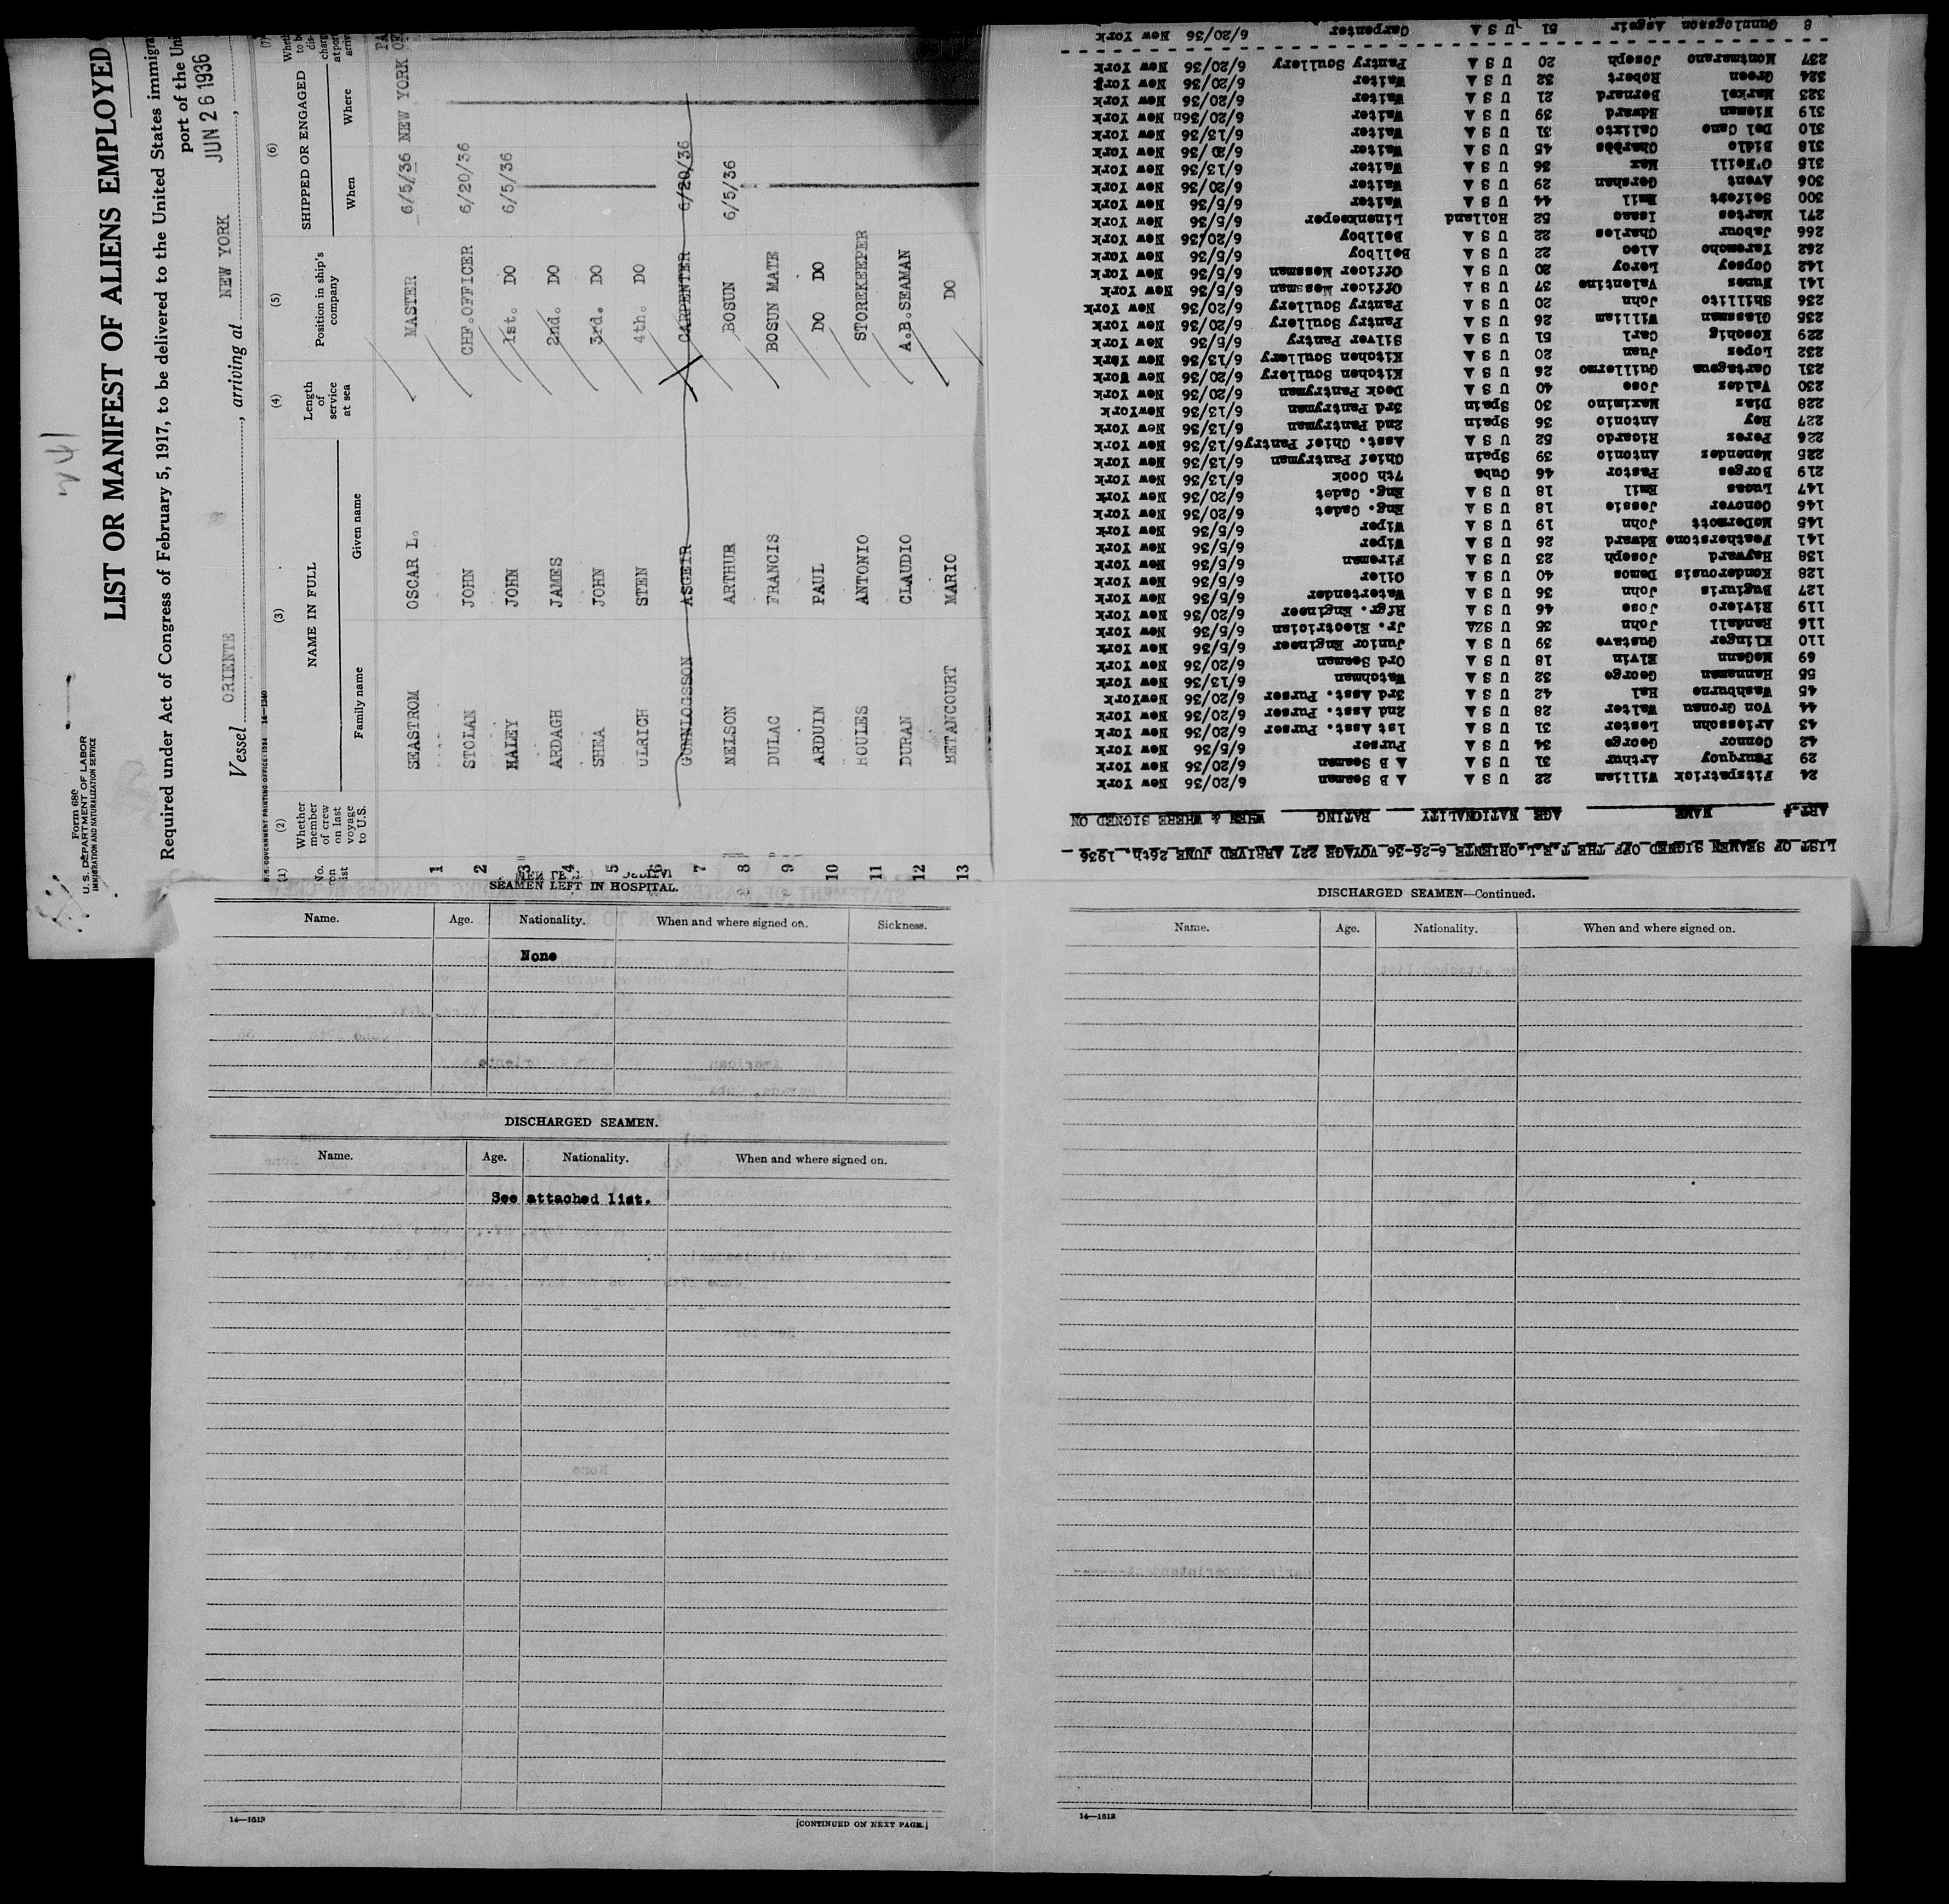 Form 680
U. S. DEPARTMENT OF LABOR
IMMIGRATION AND NATURALIZATION SERVICE
LIST OR MANIFEST OF ALIENS EMPLOYED
Required under Act of Congress of February 5, 1917, to be delivered to the United States
port of the
Vessel ORIENTE, arriving at NEW YORK, JUN 26 1936,
U.S. GOVERNMENT PRINTING OFFICE: 1934 14—1240
(1) (2) (3) (4) (5) (6) (7)
No. on list Whether member of crew on last voyage to U.S. NAME IN FULL Length of service at sea Position in ship's company SHIPPED OR ENGAGED
Family name Given name When Where
1 SEASTROM OSCAR L. MASTER 6/5/36 NEW YORK
2 STOLAN JOHN CHF.OFFICER 6/20/36
3 HALEY JOHN 1st. DO 6/5/36
4 ARDAGH JAMES 2nd. DO
5 SHEA JOHN 3rd. DO
6 ULRICH STEN 4th. DO
7 GUNNLOGSSON ASGEIR CARPENTER 6/20/36
8 NELSON ARTHUR BOSUN 6/5/36
9 DULAC FRANCIS BOSUN MATE
10 ARDUIN PAUL DO DO
11 ROULES ANTONIO STOREKEEPER
12 DURAN CLAUDIO A.B.SEAMAN
13 BETANCOURT MARIO DO
LIST OF SEAMEN SIGNED OFF THE T.E.L.ORIENTE 6-26-36 VOYAGE 227 ARRIVED JUNE 26th. 1936
ART.# NAME AGE NATIONALITY RATING WHEN & WHERE SIGNED ON
24 Fitzpatrick William 22 U S A A B Seaman 6/20/36 New York
29 Pourquoy Arthur 31 U S A A B Seaman 6/20/36 New York
42 Connor George 34 U S A Purser 6/5/36 New York
43 Ariessohn Lester 31 U S A 1st Asst. Purser 6/20/36 New York
44 Von Gronau Walter 28 U S A 2nd Asst. Purser 6/20/36 New York
45 Washburne Hal 42 U S A 3rd Asst. Purser 6/20/36 NewYork
55 Hannaman George 32 U S A Watchman 6/13/36 New York
69 McGann Elvin 18 U S A Ord Seaman 6/20/36 New York
110 Klinger Gustave 39 U S A Junior Engineer 6/5/36 New York
116 Randall John 35 U SZA Jr. Electrician 6/5/36 New York
119 Riviero Jose 46 U S A Rfgr. Engineer 6/20/36 New York
127 Bugiuris John 36 U S A Watertender 6/5/36 New York
128 Kondorousis Demos 40 U S A Oiler 6/5/36 New York
138 Hayward Joseph 23 U S A Fireman 6/5/36 New York
141 Featherstone Edward 26 U S A Wiper 6/5/36 New York
145 McDermott John 19 U S A Wiper 6/5/36 New York
146 Conover Jessie 18 U S A Eng. Cadet 6/20/36 New York
147 Lucas Emil 18 U S A Eng. Cadet 6/20/36 New York
219 Borges Pastor 46 Cuba 7th Cook 6/13/36 New York
225 Menendez Antonio 39 Spain Chief Pantryman 6/13/36 New York
226 Perez Ricardo 52 U S A Asst. Chief Pantry 6/13/36 New York
227 Rey Antonio 36 Spain 2nd Pantryman 6/13/36 New York
228 Diaz Maximino 30 Spain 3rd Pantryman 6/13/36 NewYork
230 Valdez Jose 40 U S A Deck Pantryman 6/20/36 New York
231 Cartagena Guillermo 26 U S A Kitchen Scullery 6/20/36 New York
232 Lopez Juan 20 U S A Kitchen Scullery 6/13/36 New York
229 Koschig Carl 51 U S A Silver Pantry 6/5/36 New York
235 Glassman William 26 U S A Pantry Scullery 6/20/36 New York
236 Shillito John 20 U S A Pantry Scullery 6/20/36 New York
141 Nunes Valentine 37 U S A Officer Messman 6/5/36 New York
142 Copsey Leroy 20 U S A Officer Messman 6/5/36 New York
262 Yaremcho Alec 22 U S A Bellboy 6/5/36 New York
266 Jabour Charles 22 U S A Bellboy 6/20/36 New York
271 Martos Isaac 52 Holland Linenkeeper 6/5/36 New York
300 Seifert Emil 44 U S A Waiter 6/5/36 New York
306 Avent Gershan 29 U S A Waiter 6/20/36 New York
315 O'Neill Max 36 U S A Waiter 6/13/36 New York
318 Bidlo 45 U S A Waiter New York
310 Del Cano Calixto 31 U S A Waiter 6/13/36 New York
319 Nieman Edward 39 U S A Waiter 6/20/36 New York
323 Markel Bernard 21 U S A Waiter 6/20/36 New York
324 Green Robert 32 U S A Waiter 6/20/36 New York
237 Montmarano Joseph 20 U S A Pantry Scullery 6/20/36 New York
8 Gunnlogsson Asgeir 51 U S A Carpenter 6/20/36 New York
SEAMEN LEFT IN HOSPITAL.
Name. Age. Nationality. When and where signed on. Sickness.
None
DISCHARGED SEAMEN.
Name. Age. Nationality. When and where signed on.
See attached list.
14—1613
[CONTINUED ON NEXT PAGE.]
DISCHARGED SEAMEN—Continued.
Name. Age. Nationality. When and where signed on.
14—1613